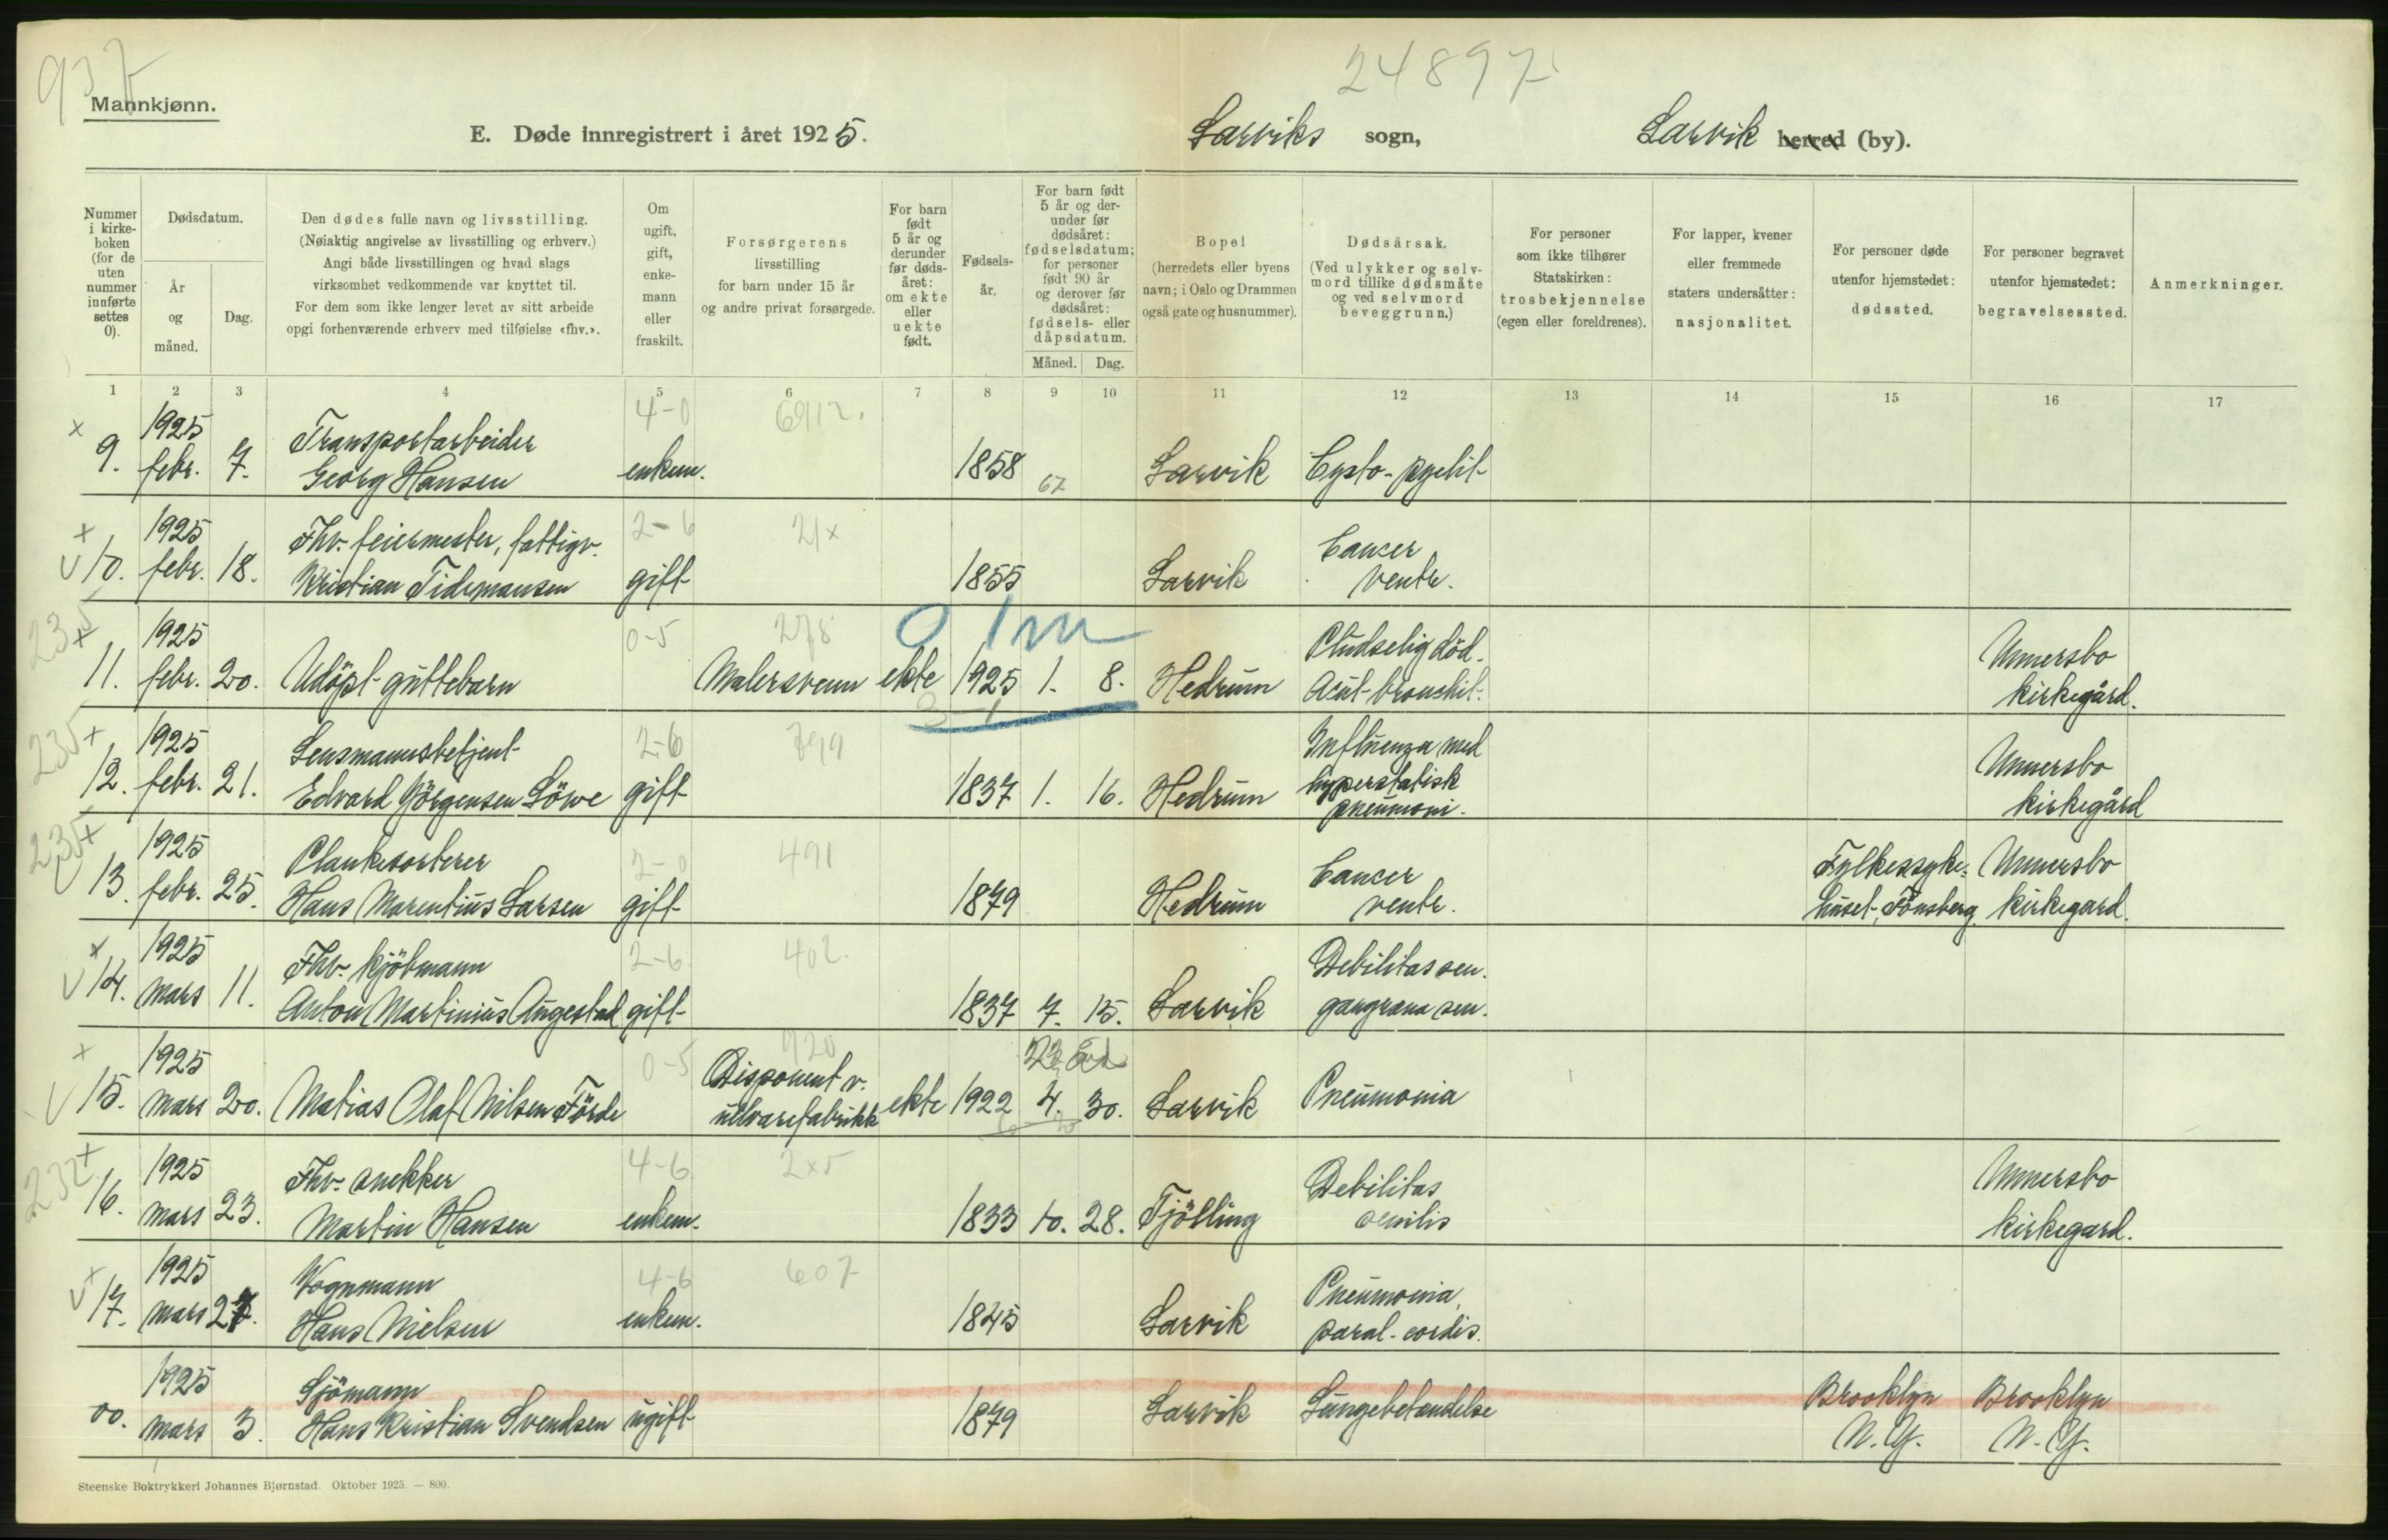 937
24897
Mannkjønn.
E. Døde innregistrert i året 1925. Larviks sogn, Larvik herred (by).
Nummer i kirke-boken (for de uten nummer innførte settes 0).
Dødsdatum.
År og måned.
Dag.
Den dødes fulle navn og livsstilling.
(Nøiaktig angivelse av livsstilling og erhverv.)
Angi både livsstillingen og hvad slags
virksomhet vedkommende var knyttet til.
For dem som ikke lenger levet av sitt arbeide
opgi forhenværende erhverv med tilføielse «fhv.».
Om ugift, gift, enke-mann eller fraskilt.
Forsørgerens
livsstilling
for barn under 15 år
og andre privat forsørgede.
For barn født 5 år og derunder før døds-året: om ekte eller uekte født.
Fødsels-år.
For barn født 5 år og der-under før dødsåret: fødselsdatum; for personer født 90 år og derover før dødsåret: fødsels- eller dåpsdatum.
Måned. Dag.
Bopel
(herredets eller byens
navn; i Oslo og Drammen
også gate og husnummer).
Dødsårsak.
(Ved ulykker og selv-
mord tillike dødsmåte
og ved selvmord
beveggrunn.)
For personer
som ikke tilhører
Statskirken:
trosbekjennelse
(egen eller foreldrenes).
For lapper, kvener
eller fremmede
staters undersåtter:
nasjonalitet.
For personer døde
utenfor hjemstedet:
dødssted.
For personer begravet
utenfor hjemstedet:
begravelsessted.
Anmerkninger.
1 2 3 4 5 6 7 8 9 10 11 12 13 14 15 16 17
1925 Transportarbeider 4-0 6912.
9. febr. 7. Georg Hansen enkem. 1858 67 Larvik Cysto-pyelit
1925 Fhv. feiermester, fattigv. 2-6 21x Cancer
10. febr. 18. Kristian Tidemansen gift 1855 Larvik ventr.
235 1925 0-5 278 0 1m Pludselig død. Unnersbo
11. febr. 20. Udöpt guttebarn Malersvenn ekte 1925 1. 8. Hedrum Acut bronchit. kirkegård.
235 1925 Lensmannsbetjent 2-6 899 Influenza med Unnersbo
12. febr. 21. Edvard Jörgensen Löwe gift 1837 1. 16. Hedrum hyperstatisk pneumoni. kirkegård
235 1925 Plankesorterer 2-0 491 Cancer Fylkessyke- Unnersbo
13. febr. 25. Hans Marentius Larsen gift 1879 Hedrum ventr. huset, Tönsberg. kirkegård.
1925 Fhv. kjöbmann 2-6 402. Debilitas sen.
14. mars 11. Anton Martinius Augestad gift 1837 7. 15. Larvik gangræna sen.
1925 0-5 920 Disponent v.
15. mars 20. Matias Olaf Nilsen Förde ullvarefabrikk ekte 1922 4. 30. Larvik Pneumonia
232 1925 Fhv. snekker 4-6 2x5 Debilitas Unnersbo
16. mars 23. Martin Hansen enkem. 1833 10. 28. Tjölling senilis kirkegård.
1925 Vognmann 4-6 607 Pneumonia,
17. mars 27. Hans Nielsen enkem. 1845 Larvik paral. cordis.
1925 Sjömann Brooklyn Brooklyn
00. mars 3. Hans Kristian Svendsen ugift 1879 Larvik Lungebetændelse N.Y. N.Y.
Steenske Boktrykkeri Johannes Bjørnstad. Oktober 1925. — 800.